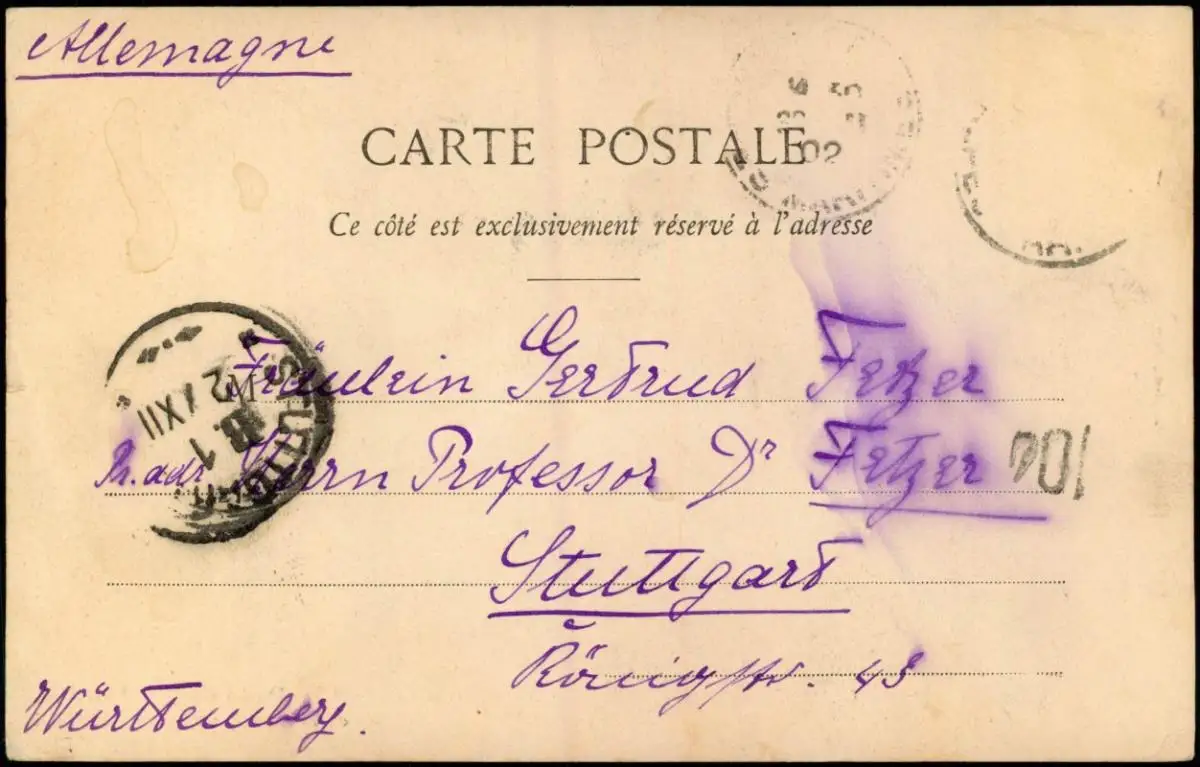 Allemagne
CARTE POSTALE
02
Ce côté est exclusivement réservé à l'adresse
Fräulein Gertrud Fetzer
Herrn Professor Dr Fetzer
Stuttgart
Königstr. 43
Württemberg.